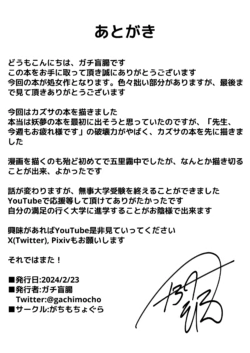 あとがき
どうもこんにちは、ガチ盲腸です
この本をお手に取って頂き誠にありがとうございます
今回の本が処女作となります。色々拙い部分がありますが、最後まで見て頂きありがとうございます
今回はカズサの本を描きました
本当は妖夢の本を最初に出そうと思っていたのですが、「先生、今週もお疲れ様です」の破壊力がやばく、カズサの本を先に描きました
漫画を描くのも殆ど初めてで五里霧中でしたが、なんとか描き切ることが出来、よかったです
話が変わりますが、無事大学受験を終えることができました
YouTubeで応援等して頂けてありがたかったです
自分の満足の行く大学に進学することがお陰様で出来ます
興味があればYouTube是非見ていってください
X(Twitter), Pixivもお願いします
それではまた！
■発行日:2024/2/23
■発行者:ガチ盲腸
Twitter:@gachimocho
■サークル:がちもちょぐら